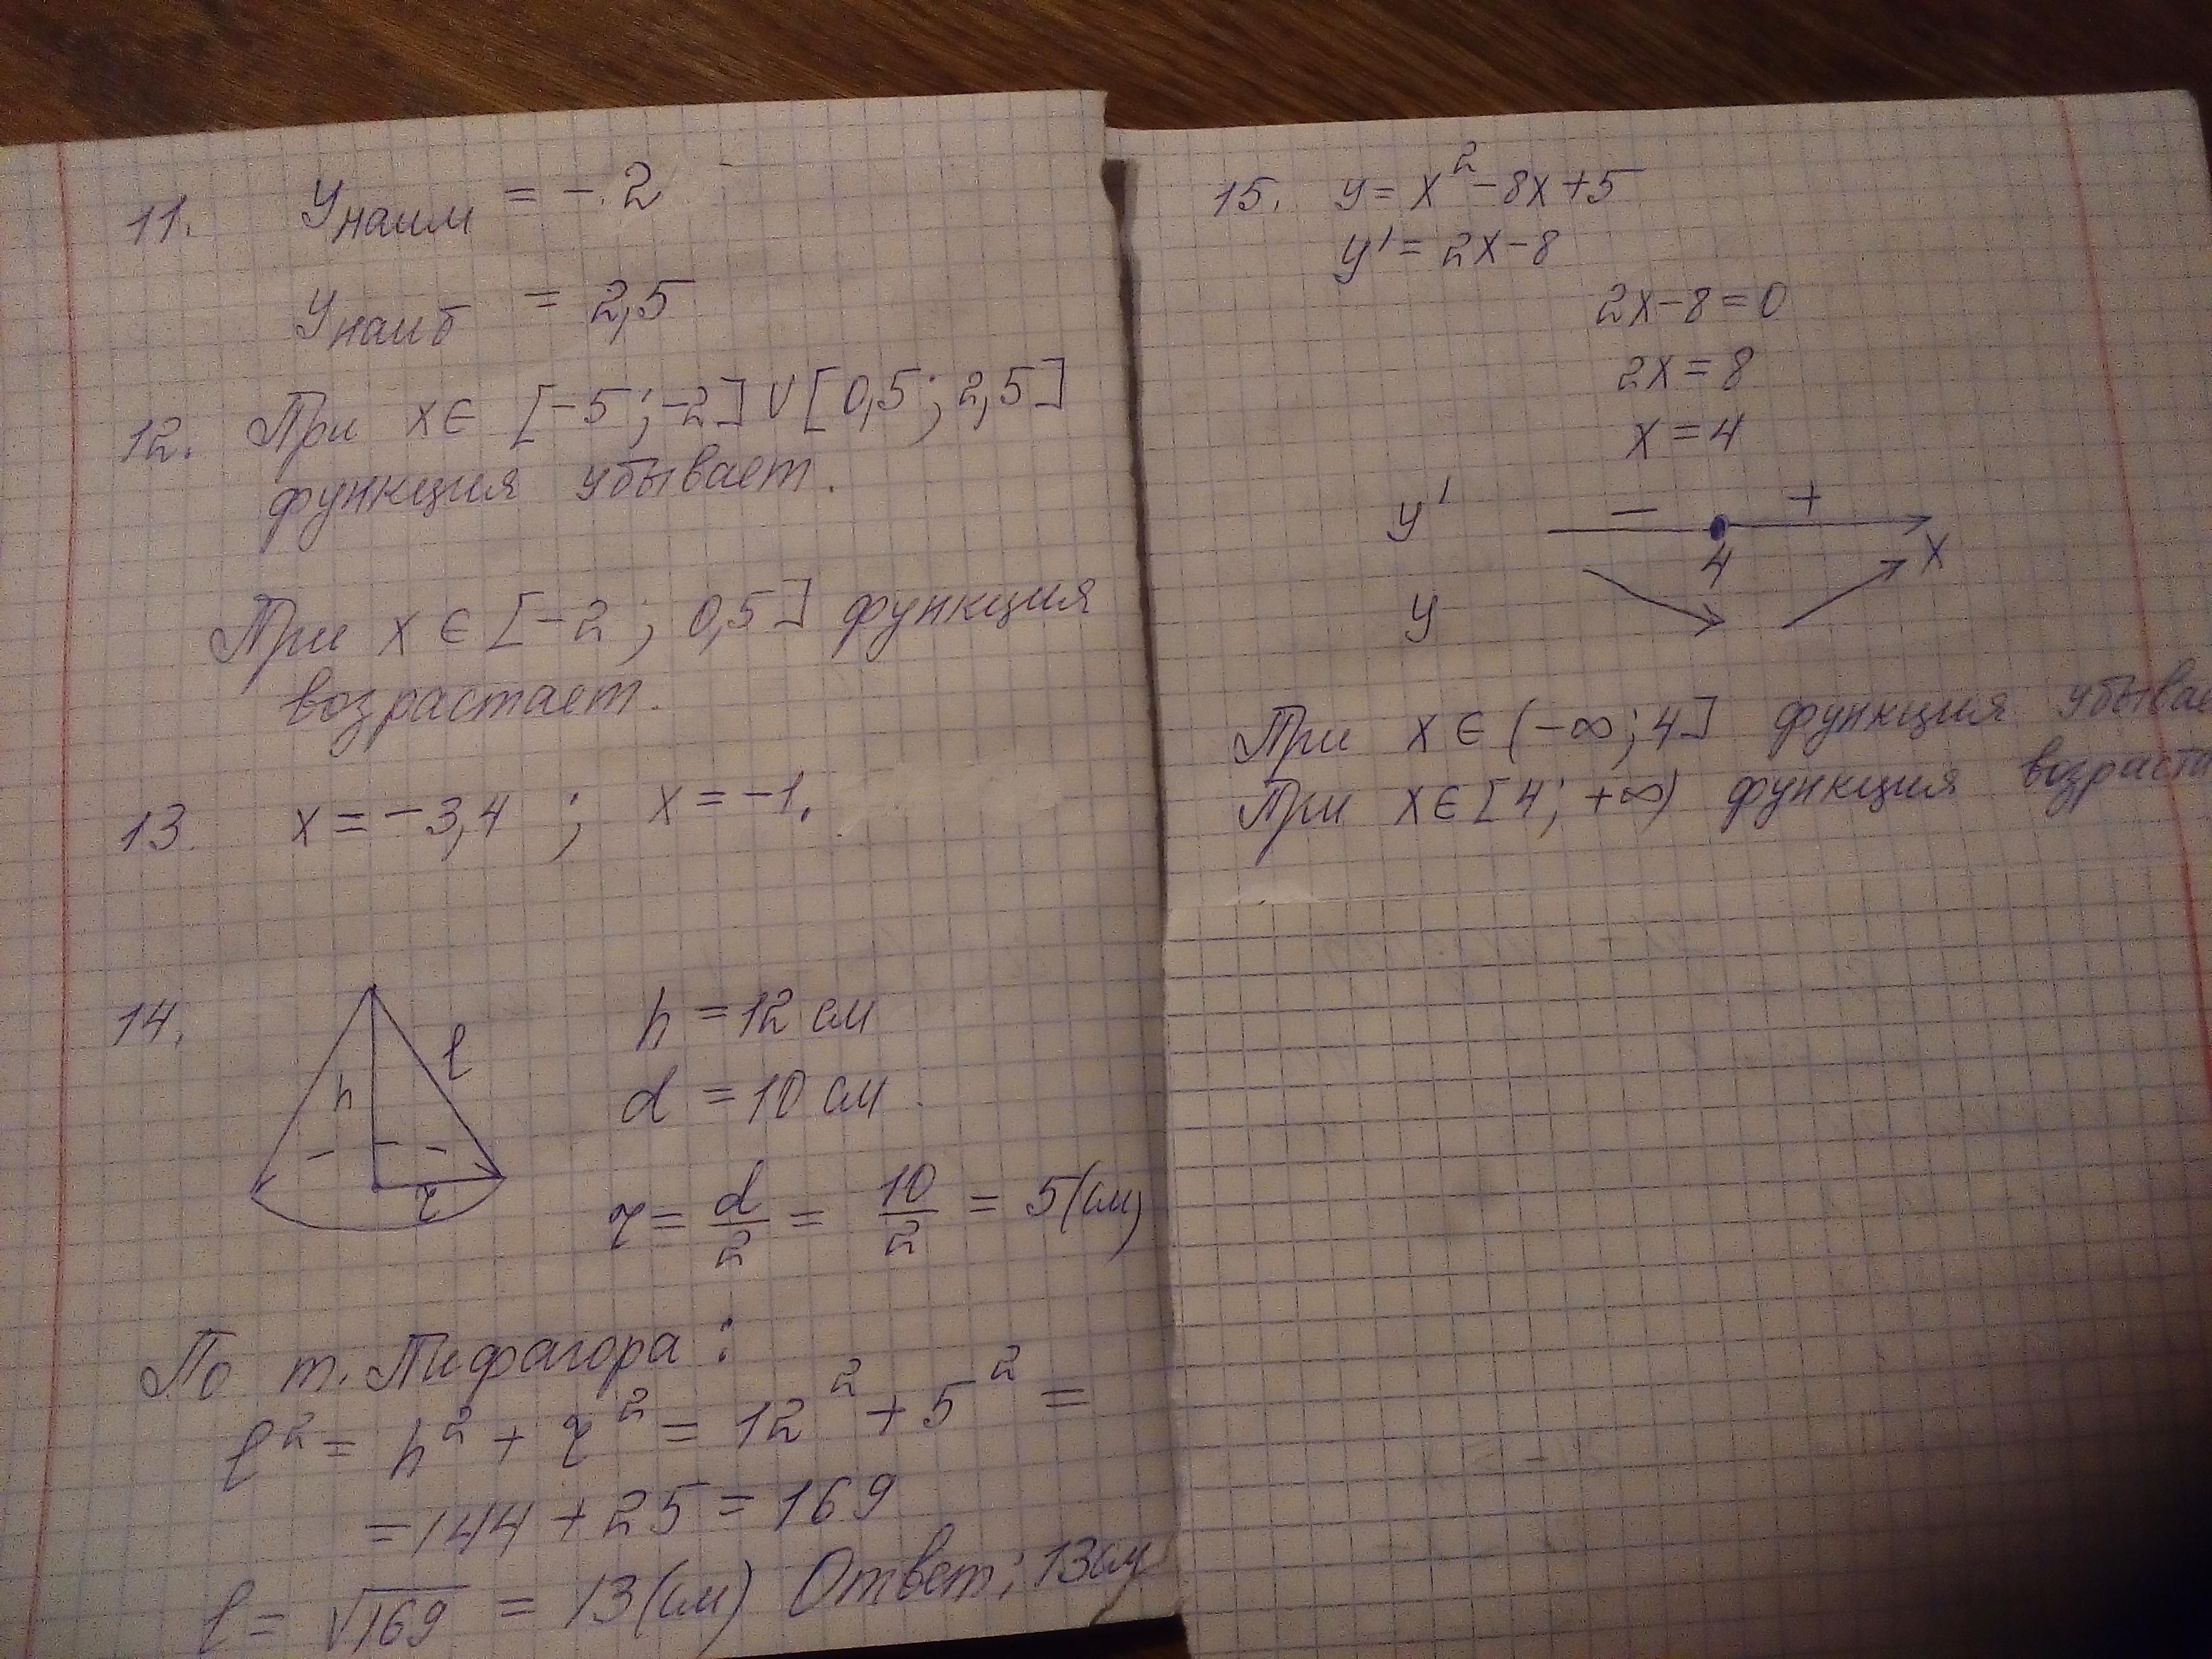 11. Унаим = -2
Унаиб = 2,5
12. При x∈ [-5; -2] ∪ [0,5; 2,5]
функция убывает.
При x ∈ [-2; 0,5] функция
возрастает.
13. x = -3,4 ; x = -1.
14. h = 12 см
d = 10 см
h l r
r = d/2 = 10/2 = 5(см)
По т. Пифагора:
l² = h² + r² = 12² + 5² =
= 144 + 25 = 169
l = √169 = 13(см) Ответ: 13см
15. y = x² - 8x + 5
y' = 2x - 8
2x - 8 = 0
2x = 8
x = 4
y' - +
4 x
y
При x ∈ (-∞; 4] функция убывае
При x ∈ [4; +∞) функция возраста